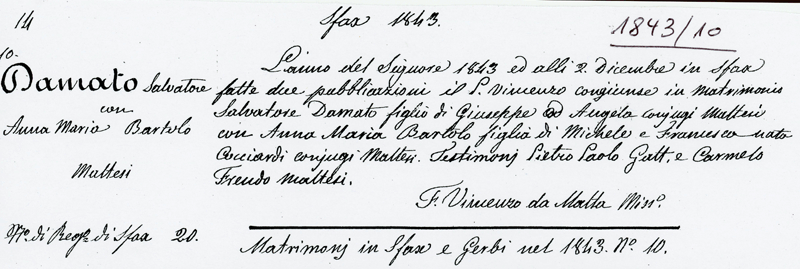 14
Sfax 1843.
1843/10
10.
Damato Salvatore
con
Anna Maria Bartolo
Maltesi
L'anno del Signore 1843 ed alli 2. Dicembre in Sfax
fatte due pubblicazioni il P. Vincenzo congiunse in Matrimonio
Salvatore Damato figlio di Giuseppe ed Angela conjugi Maltesi
con Anna Maria Bartolo figlia di Michele e Francesca nata
Cucciardi conjugi Maltesi. Testimonj Pietro Paolo Gatt, e Carmelo
Frendo Maltesi.
F. Vincenzo da Malta Missº.
Nº. di Regº. di Sfax 20.
Matrimonj in Sfax e Gerbi nel 1843. Nº. 10.